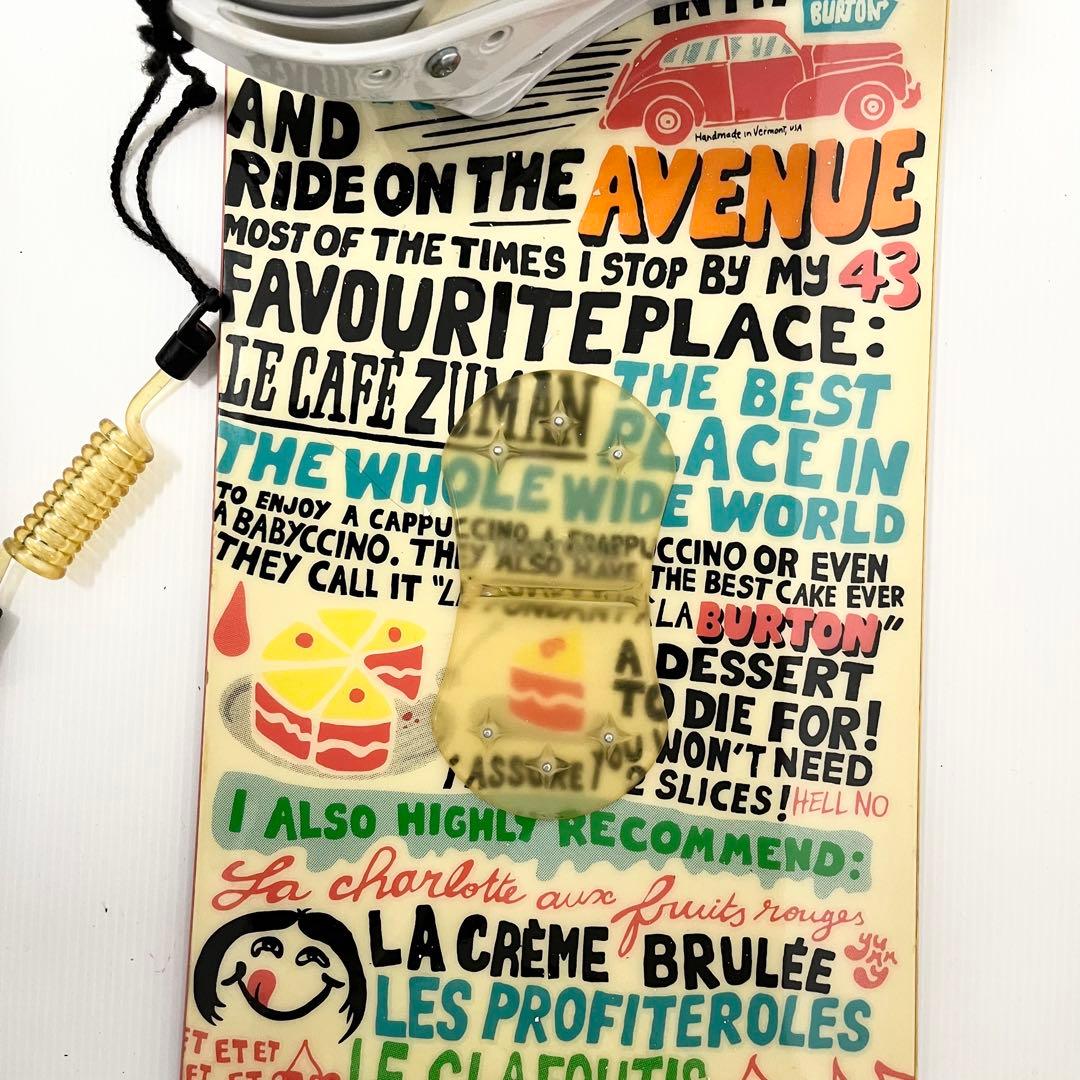 BURTON
Handmade in Vermont, USA
AND
RIDE ON THE AVENUE
MOST OF THE TIMES I STOP BY MY 43
FAVOURITE PLACE:
LE CAFÉ ZUMAN THE BEST
PLACE IN
THE WHOLE WIDE WORLD
TO ENJOY A CAPPUCCINO, A FRAPPUCCINO OR EVEN
A BABYCCINO. THEY ALSO HAVE THE BEST CAKE EVER
THEY CALL IT "LE FONDANT À LA BURTON"
A DESSERT
TO DIE FOR!
I ASSURE YOU WON'T NEED
2 SLICES! HELL NO
I ALSO HIGHLY RECOMMEND:
La charlotte aux fruits rouges
LA CRÈME BRULÉE yummy
LES PROFITEROLES
ET ET ET LE CLAFOUTIS
ET ET